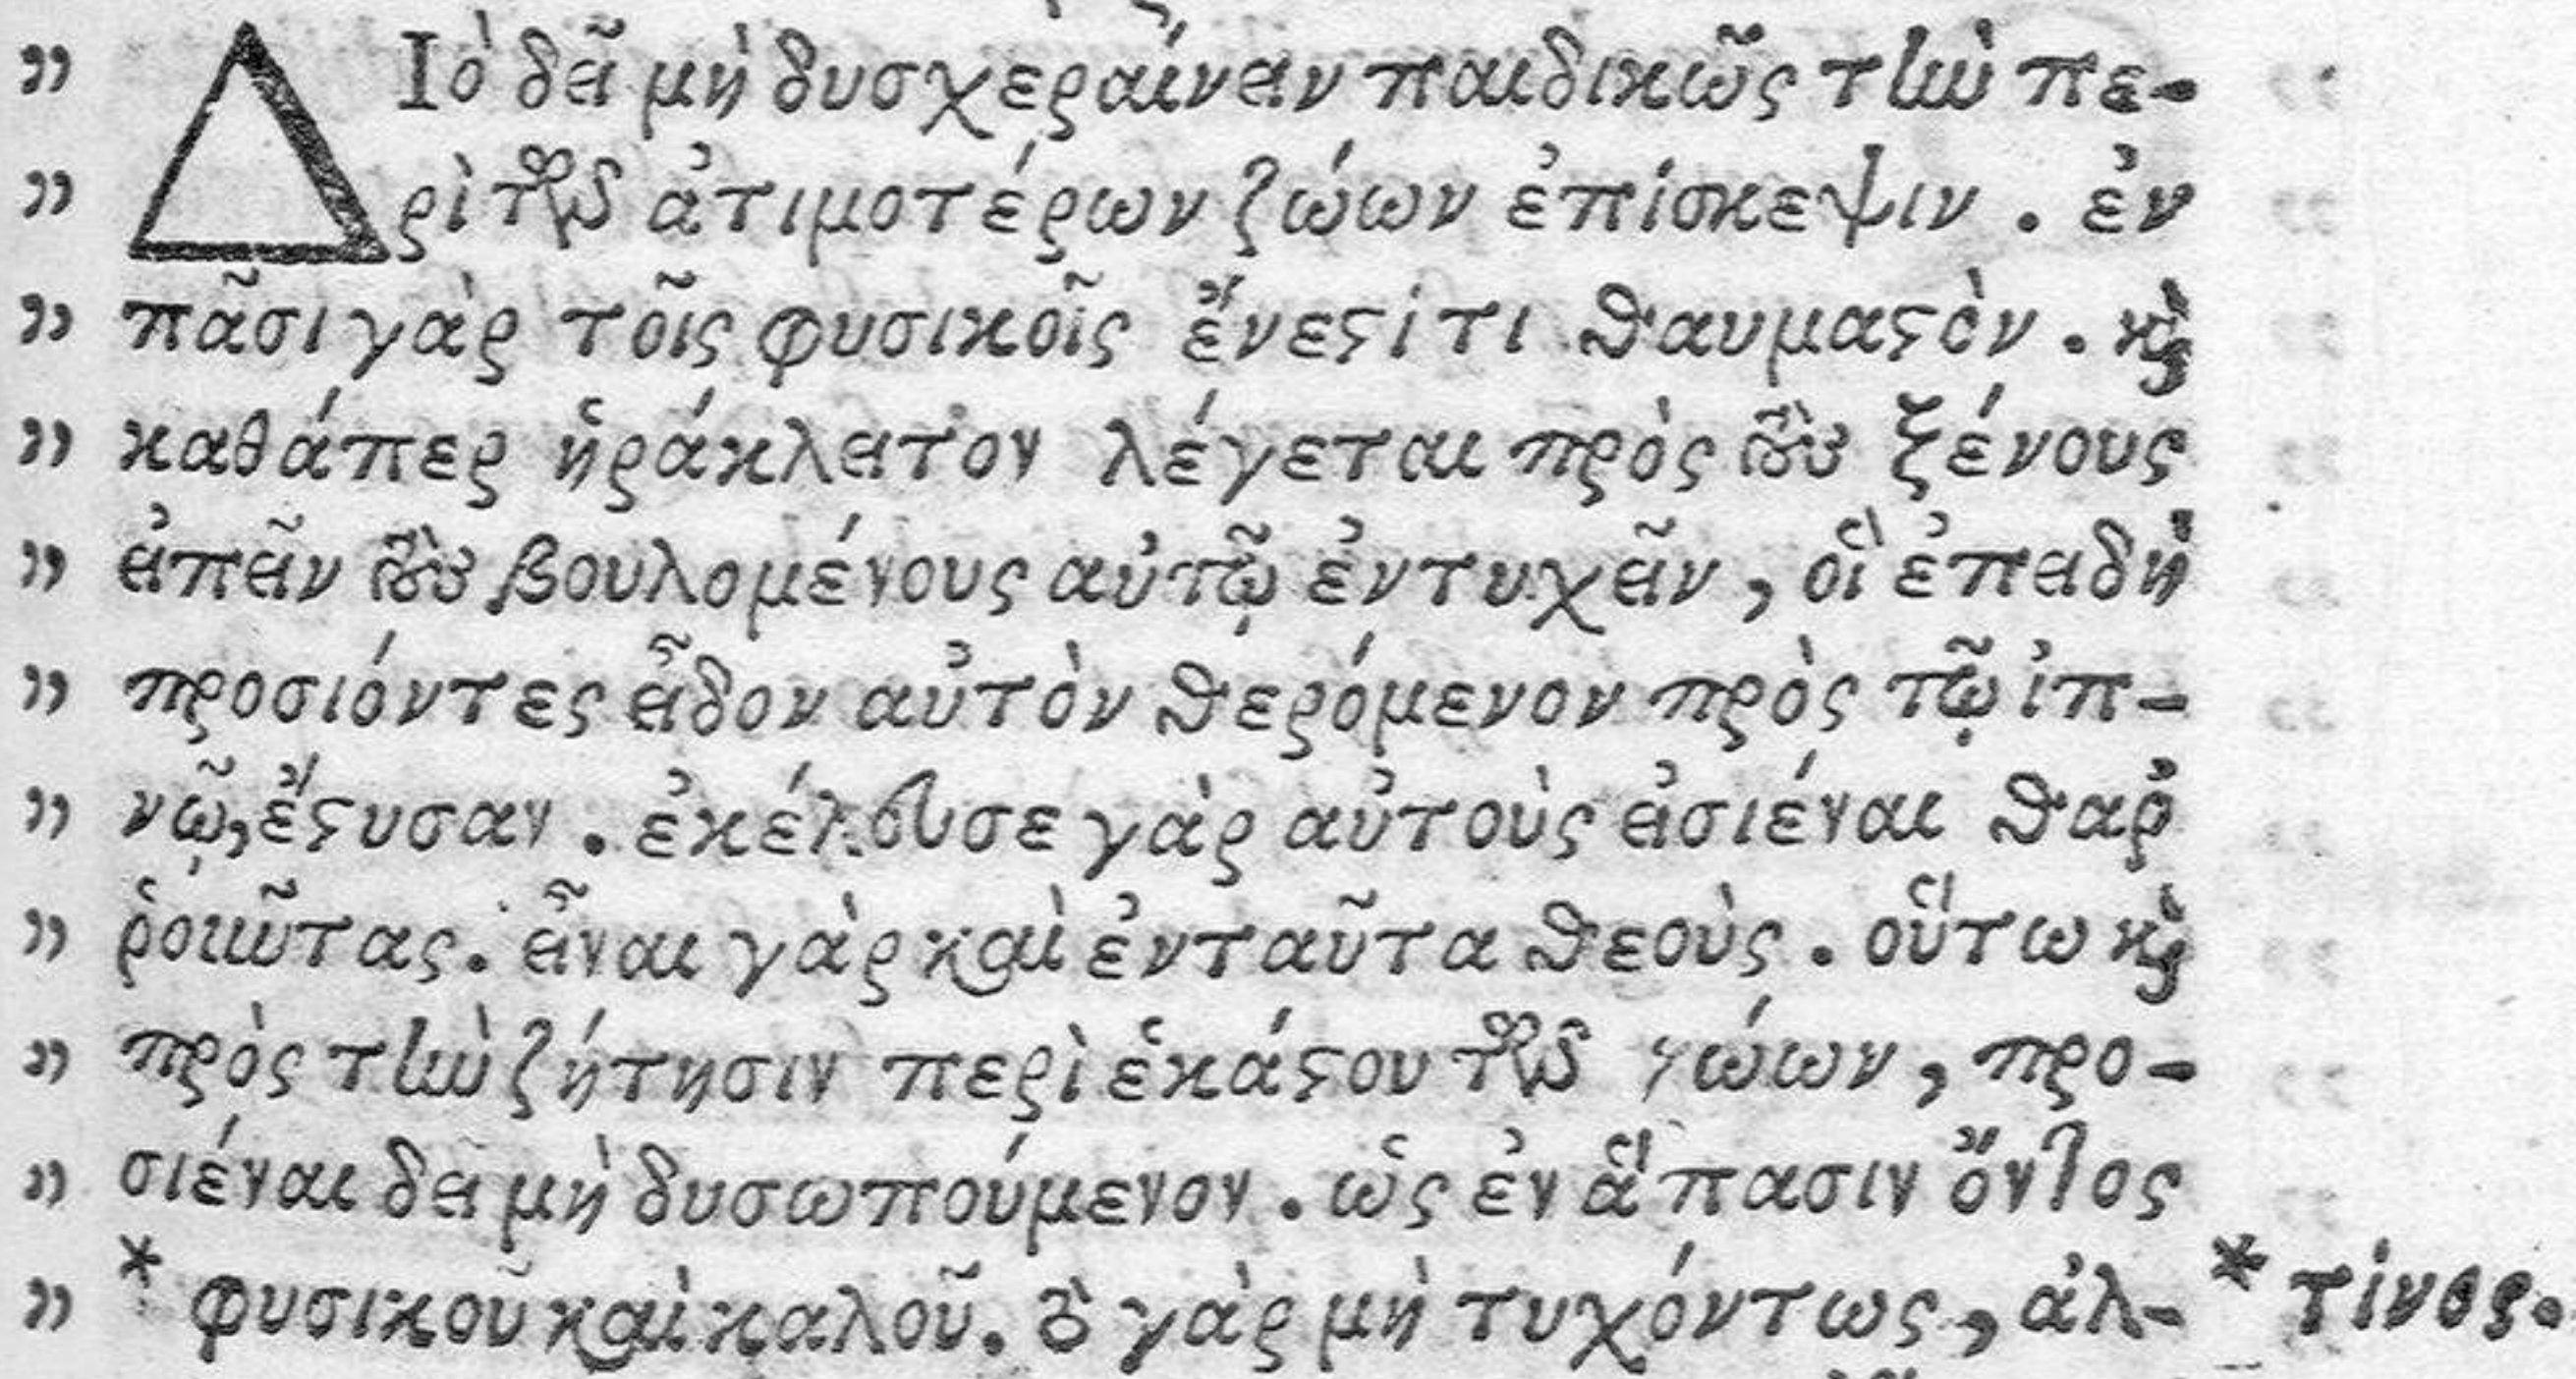 ΔΙὸ δεῖ μὴ δυσχεραίνειν παιδικῶς τὴν πε-
ρὶ τῶν ἀτιμοτέρων ζώων ἐπίσκεψιν . ἐν
πᾶσι γὰρ τοῖς φυσικοῖς ἔνεϛί τι θαυμαϛὸν . ϗ̀
καθάπερ ἡράκλειτον λέγεται πρὸς τοὺς ξένους
εἰπεῖν τοὺς βουλομένους αὐτῷ ἐντυχεῖν , οἳ ἐπειδὴ
προσιόντες εἶδον αὐτὸν θερόμενον πρὸς τῷ ἰπ-
νῷ, ἔϛυσαν . ἐκέλευσε γὰρ αὐτοὺς εἰσιέναι θαῤ
ῥοιῶτας . εἶναι γὰρ καὶ ἐνταῦτα θεοὺς . οὕτω ϗ̀
πρὸς τὴν ζήτησιν περὶ ἑκάϛου τῶν ζώων , προ-
σιέναι δεῖ μὴ δυσωπούμενον . ὡς ἐν ἅπασιν ὄντος
* φυσικοῦ καὶ καλοῦ . ὃ γὰρ μὴ τυχόντως , ἀλ- * τίνος .